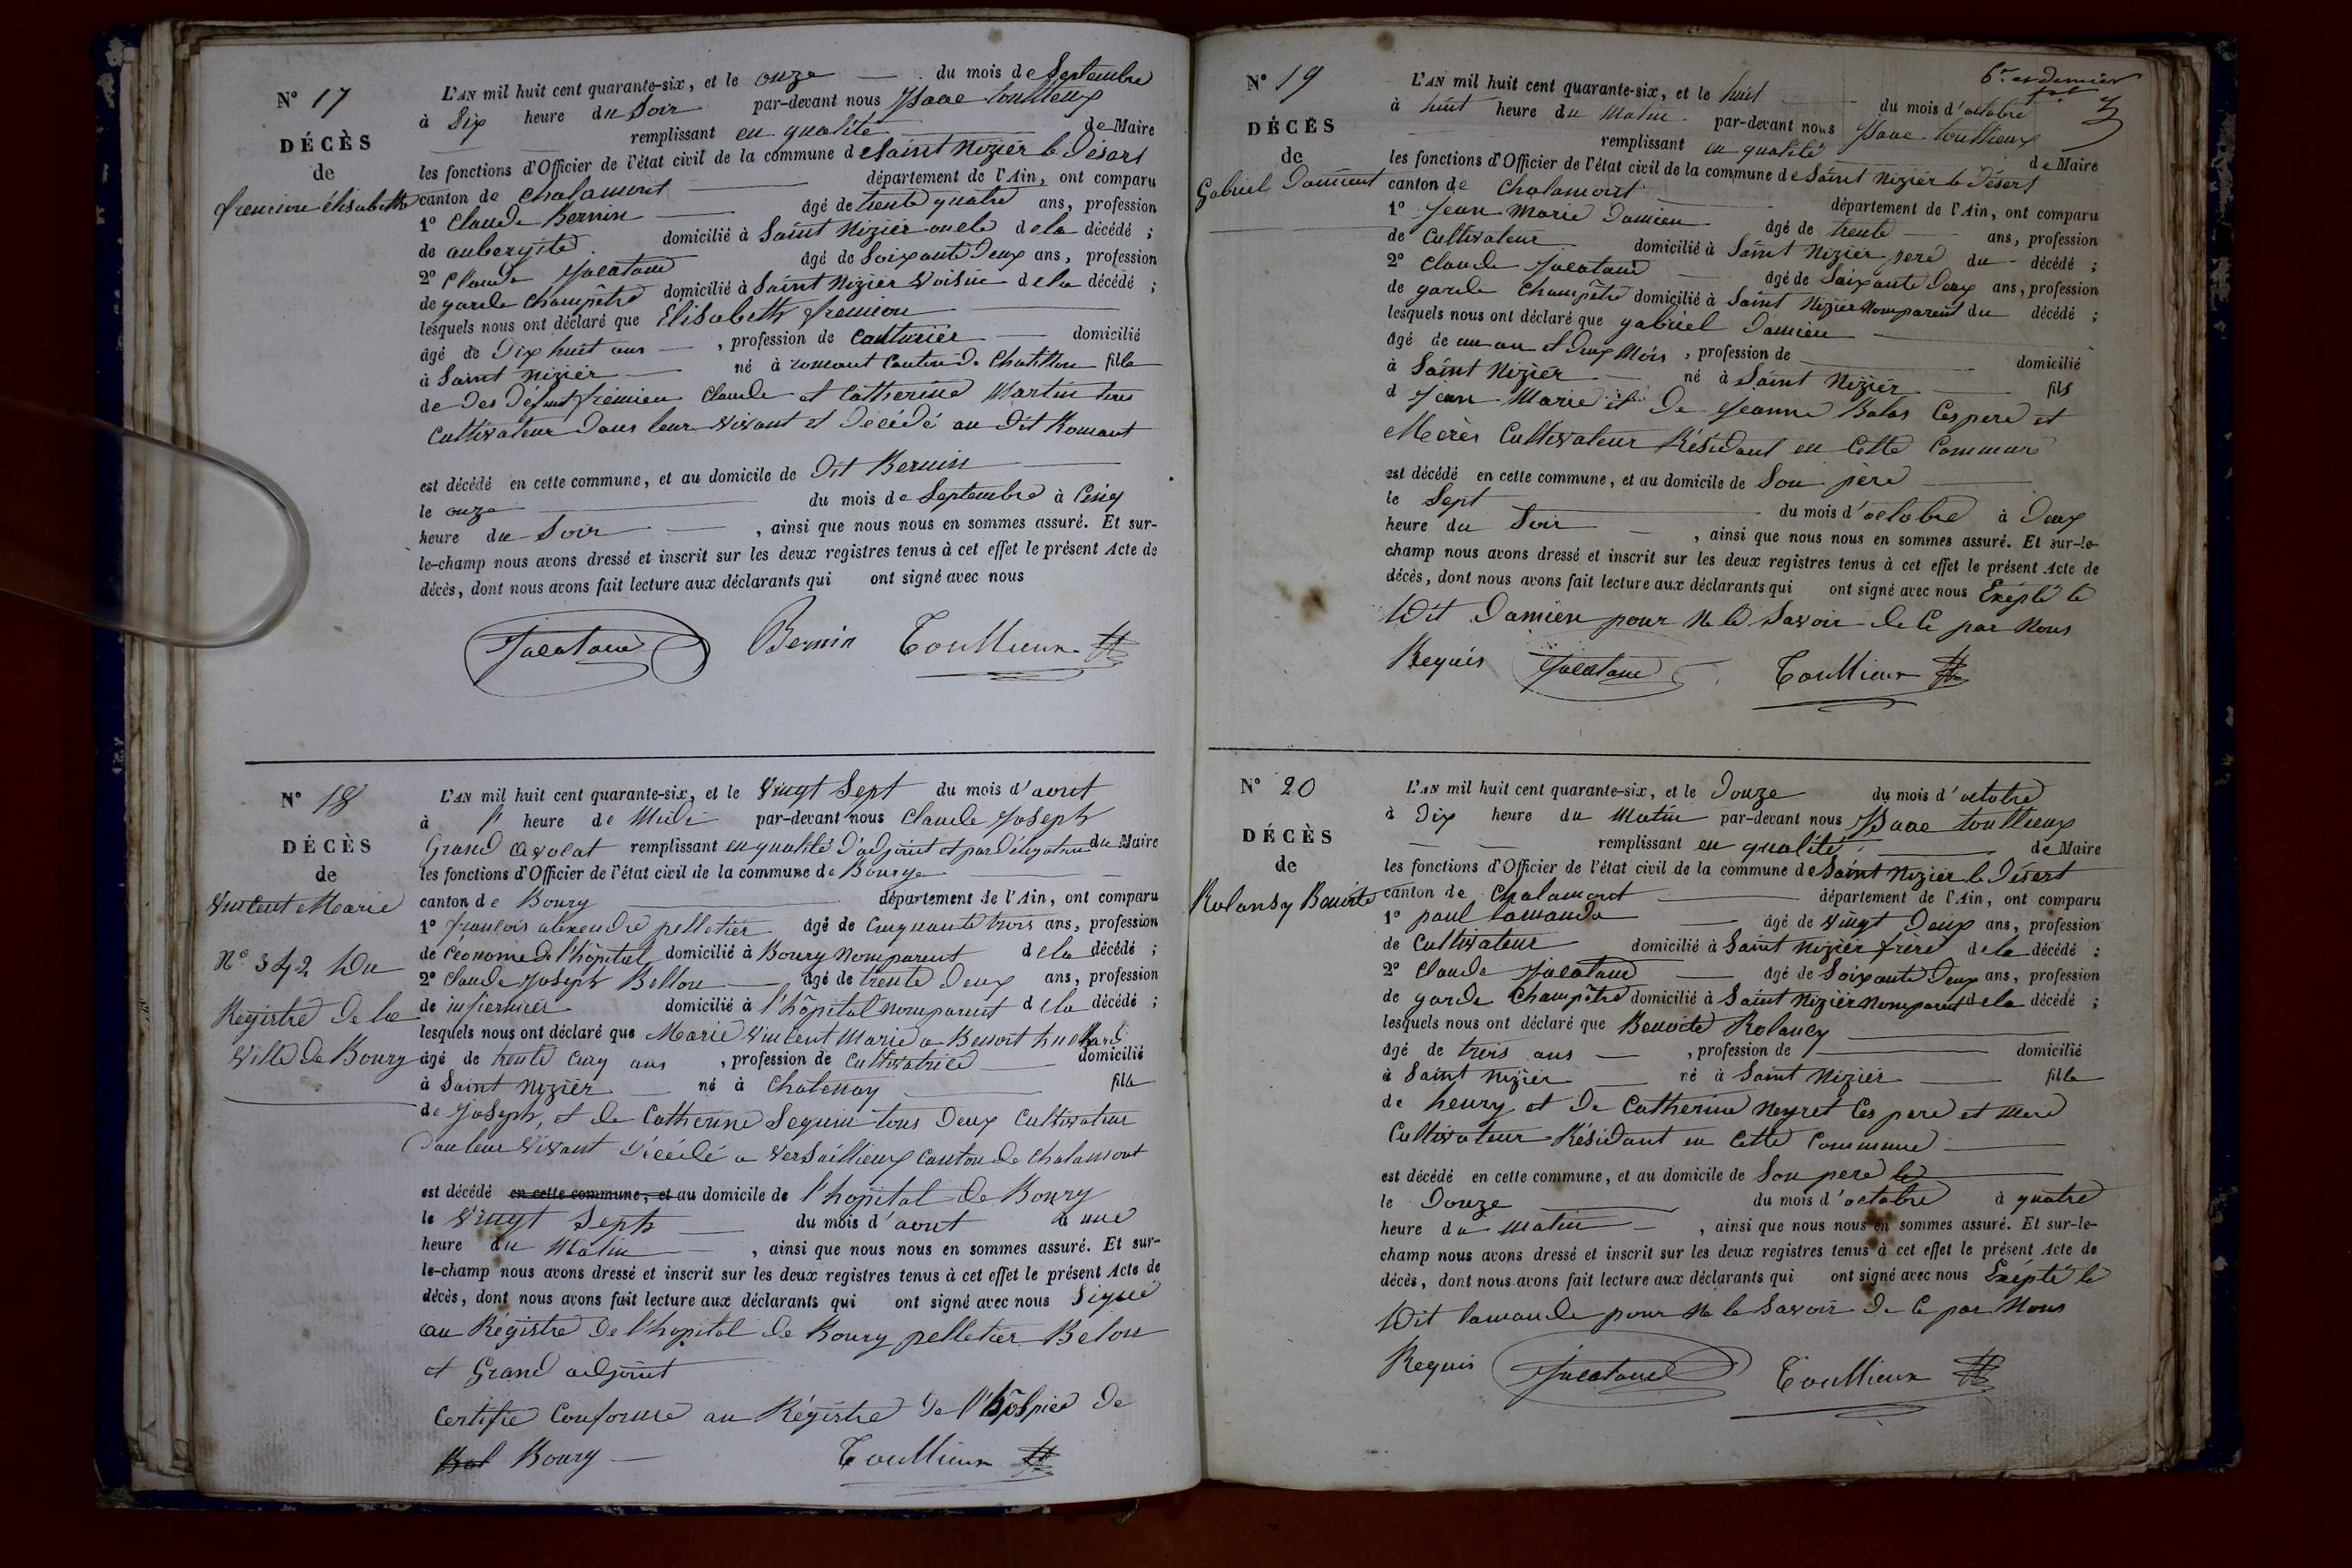 N° 17
DÉCÈS
de
fremion élisabeth
L'AN mil huit cent quarante-six, et le onze du mois de Septembre
à Six heure du Soir par-devant nous Isaac toullieux
remplissant en qualité de Maire
les fonctions d'Officier de l'état civil de la commune de Saint Nizier le Désert
canton de chalamont département de l'Ain, ont comparu
1° Claude Bernin âgé de trente quatre ans, profession
de aubergite domicilié à Saint Nizier oncle de la décédé ;
2° Claude Jacataud âgé de Soixante Deux ans, profession
de garde champêtre domicilié à Saint Nizier Voisin de la décédé ;
lesquels nous ont déclaré que Elisabeth fremion
âgé de Dix huit ans, profession de couturier domicilié
à Saint Nizier né à romant Canton de Chatillon fille
de Des défunt frémion Claude et Catherine Martin tous
Cultivateur dans leur vivant et Décédé au dit Romant
est décédé en cette commune, et au domicile de Dit Bernin
le onze du mois de Septembre à Cinq
heure du Soir, ainsi que nous nous en sommes assuré. Et sur-
le-champ nous avons dressé et inscrit sur les deux registres tenus à cet effet le présent Acte de
décès, dont nous avons fait lecture aux déclarants qui ont signé avec nous
Jacataud Bernin Toullieux
N° 18
DÉCÈS
de
Vincent Marie
N° 342 Du
Registre de la
Ville de Bourg
L'AN mil huit cent quarante-six, et le Vingt Sept du mois d'aout
à heure de Midi par-devant nous Claude Joseph
Grand avocat remplissant en qualité d'adjoint et par délégation du Maire
les fonctions d'Officier de l'état civil de la commune de Bourge
canton de Bourg département de l'Ain, ont comparu
1° françois alexendre pelletier âgé de Cinquante trois ans, profession
de économe de l'hôpital domicilié à Bourg nomparent de la décédé ;
2° Claude Joseph Bellon âgé de trente Deux ans, profession
de infiermier domicilié à l'hôpital nomparent de la décédé ;
lesquels nous ont déclaré que Marie Vincent Marie a Benoit
âgé de trente Cinq ans, profession de Cultivatrice domicilié
à Saint Nizier né à Chatenay fille
de Joseph, et de Catherine Seguin tous Deux Cultivateur
Dan leur Vivant Décédé a Versaillieux Canton de Chalamont
est décédé en cette commune, et au domicile de l'hopital de Bourg
le Vingt Sept du mois d'aout à une
heure du Matin, ainsi que nous nous en sommes assuré. Et sur-
le-champ nous avons dressé et inscrit sur les deux registres tenus à cet effet le présent Acte de
décès, dont nous avons fait lecture aux déclarants qui ont signé avec nous Signé
au Régistre de l'hopital de Bourg pelletier Belon
et Grand adjoint
Certifié Conforme au Régistre de l'hôspice de
Bourg Toullieux
6e et dernier
N° 19
DÉCÈS
de
Gabriel Damient
L'AN mil huit cent quarante-six, et le huit du mois d'octobre
à huit heure du Matin par-devant nous Isaac toullieux
remplissant en qualité de Maire
les fonctions d'Officier de l'état civil de la commune de Saint Nizier le Désert
canton de Chalamont département de l'Ain, ont comparu
1° Jean Marie Damien âgé de trente ans, profession
de Cultivateur domicilié à Saint Nizier pere du décédé ;
2° Claude Jacataud âgé de Soixante Deux ans, profession
de garde Champêtre domicilié à Saint Nizier nomparent du décédé ;
lesquels nous ont déclaré que gabriel Damien
âgé de un an et deux Mois, profession de domicilié
à Saint Nizier né à Saint Nizier fils
d Jean Marie et De Jeanne Balas Ces pere et
Merès Cultivateur Résidant en Cette Commune
est décédé en cette commune, et au domicile de Son père
le Sept du mois d'octobre à Deux
heure du Soir, ainsi que nous nous en sommes assuré. Et sur-le-
champ nous avons dressé et inscrit sur les deux registres tenus à cet effet le présent Acte de
décès, dont nous avons fait lecture aux déclarants qui ont signé avec nous Exépté le
Dit Damien pour Ne le Savoir de Ce par Nous
Requis Jacataud Toullieux
N° 20
DÉCÈS
de
Rolansy Benoite
L'AN mil huit cent quarante-six, et le Douze du mois d'octobre
à Dix heure du Matin par-devant nous Isaac toullieux
remplissant en qualité de Maire
les fonctions d'Officier de l'état civil de la commune de Saint Nizier le Désert
canton de Chalamont département de l'Ain, ont comparu
1° paul lamande âgé de Vingt Deux ans, profession
de Cultivateur domicilié à Saint Nizier frère de la décédé ;
2° Claude Jacataud âgé de Soixante Deux ans, profession
de garde Champêtre domicilié à Saint Nizier nomparent de la décédé ;
lesquels nous ont déclaré que Benoite Rolancy
âgé de trois ans, profession de domicilié
à Saint Nizier né à Saint Nizier fille
de henry et de Catherine Neyret Ces pere et Mere
Cultivateur Résidant en Cette Commune
est décédé en cette commune, et au domicile de Son pere le
le Douze du mois d'octobre à quatre
heure du Matin, ainsi que nous nous en sommes assuré. Et sur-le-
champ nous avons dressé et inscrit sur les deux registres tenus à cet effet le présent Acte de
décès, dont nous avons fait lecture aux déclarants qui ont signé avec nous Exépté le
Dit lamande pour Ne le Savoir De Ce par Nous
Requis Jacataud Toullieux